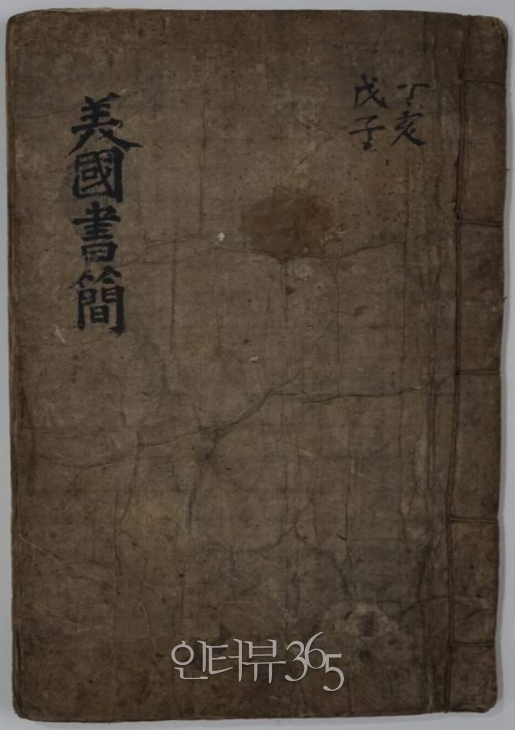 丁亥
戊子
美國書簡
인터뷰365